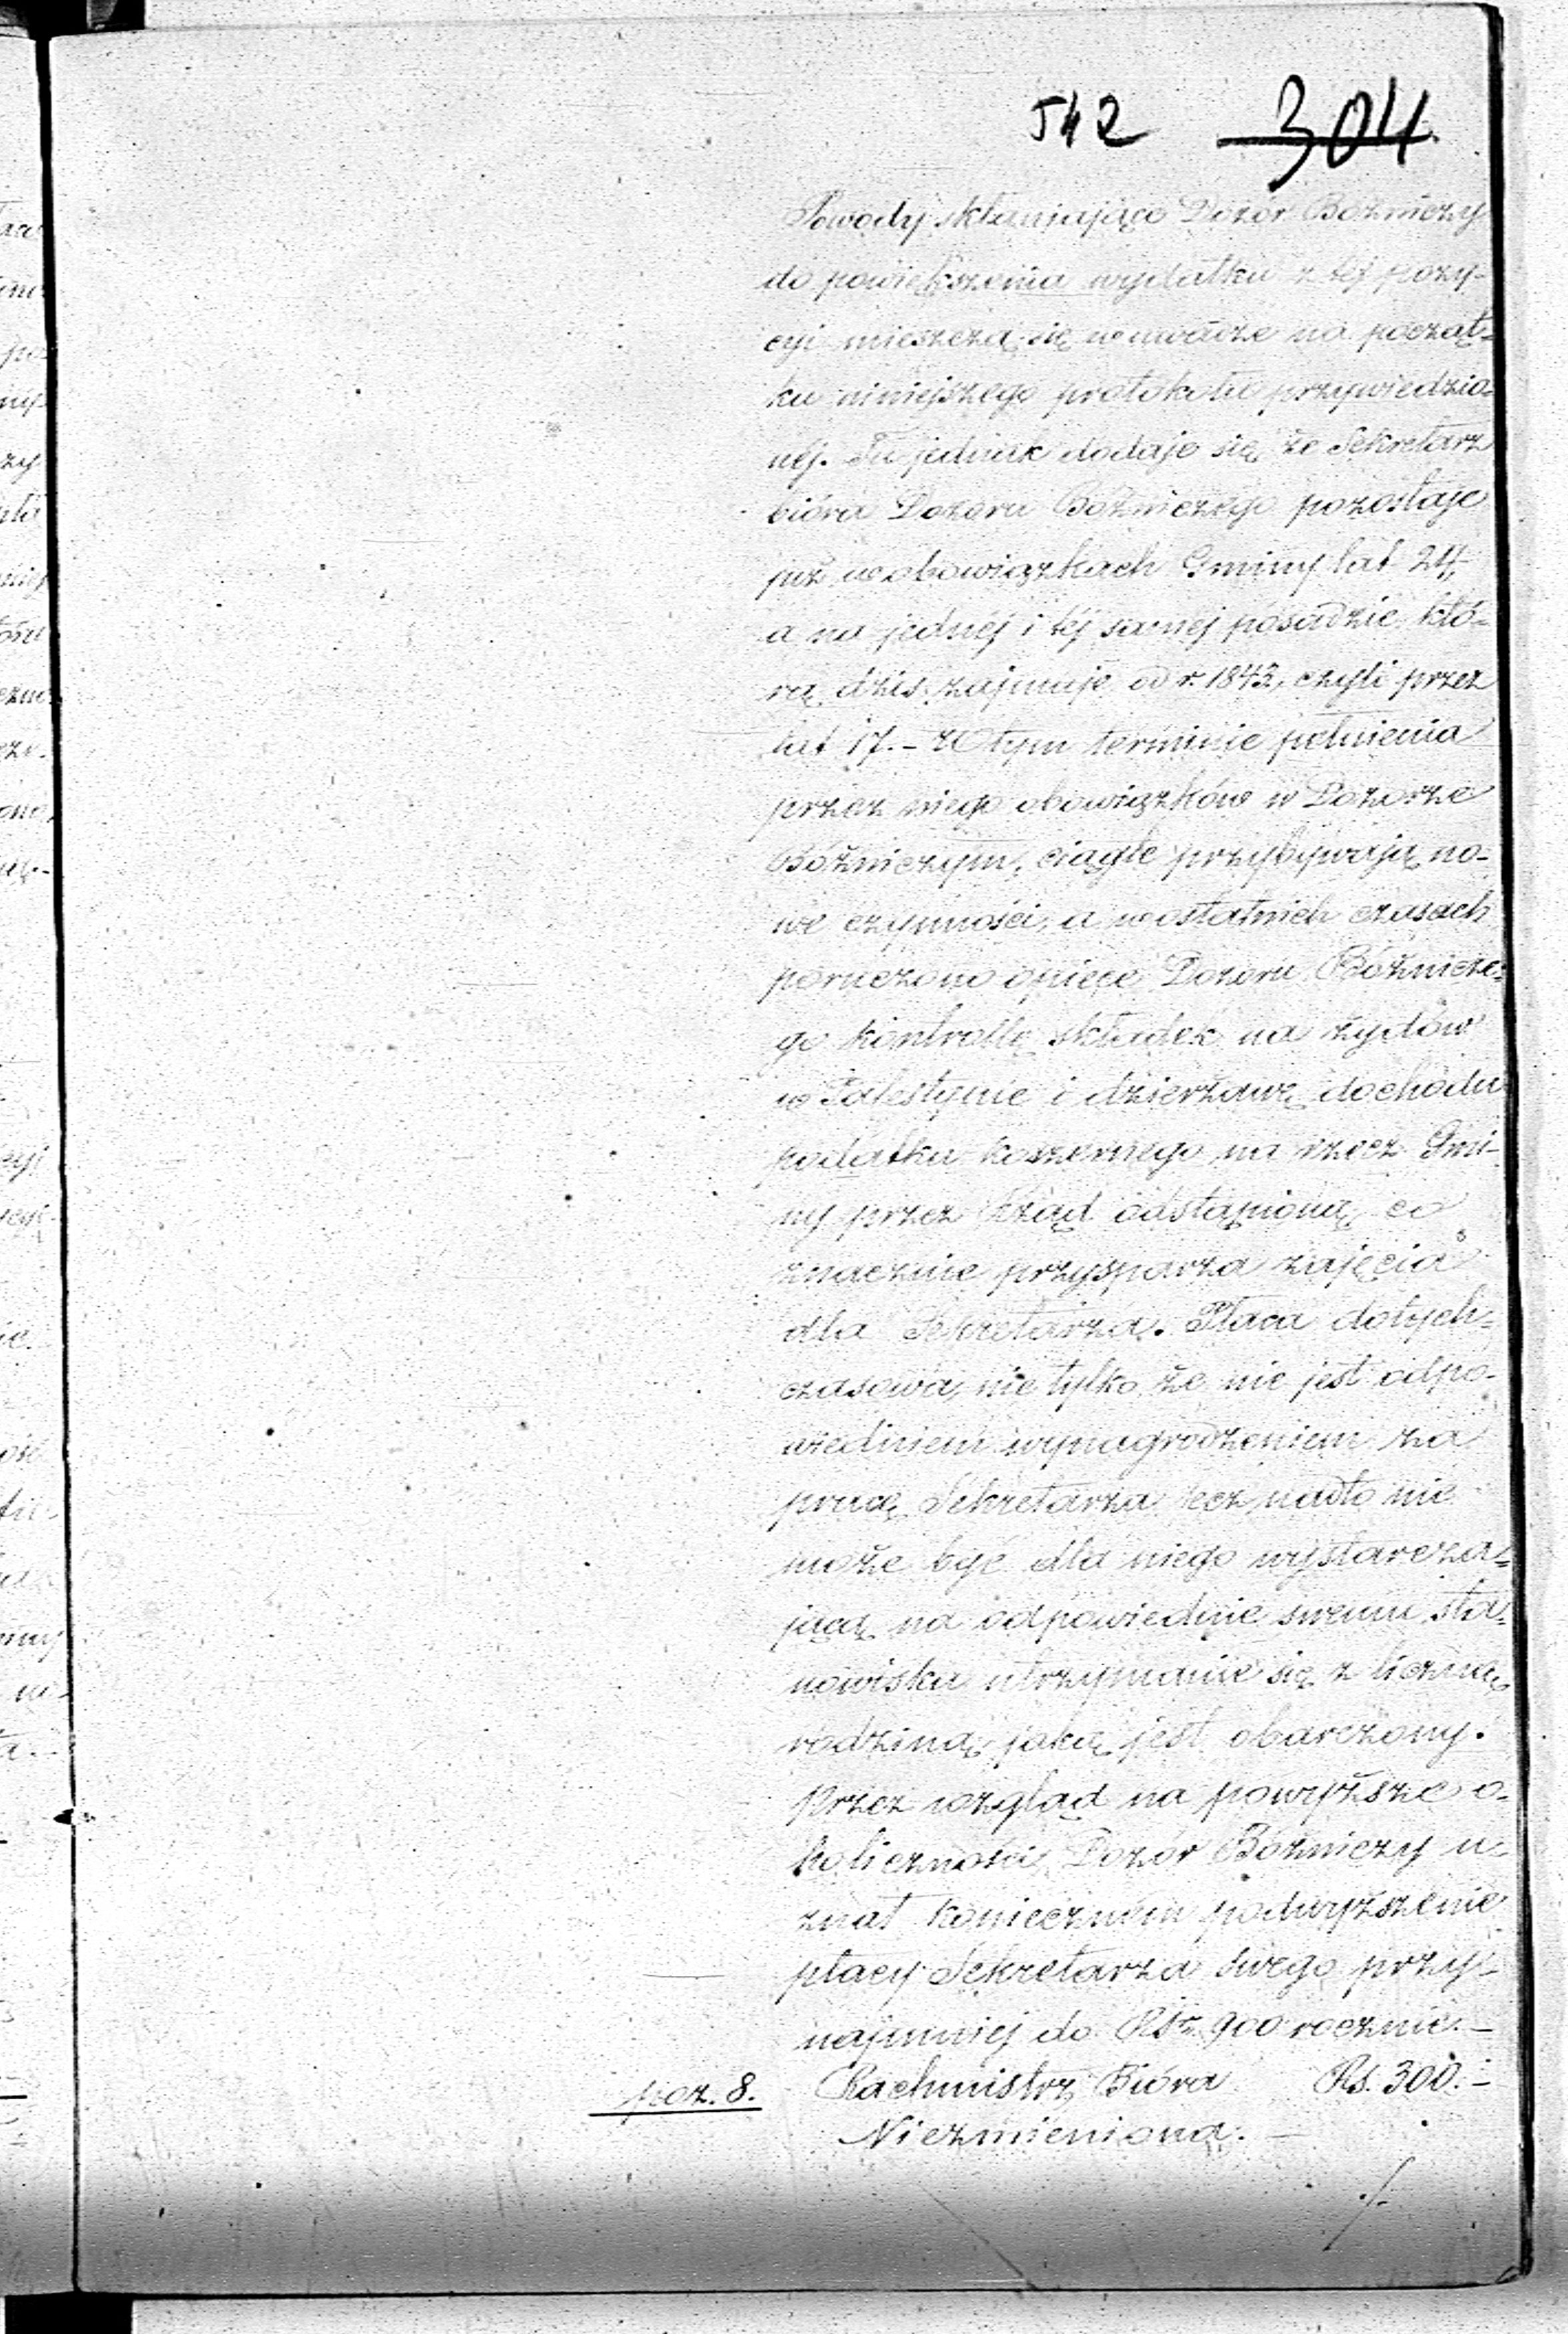 542 304
Powody skłaniające Dozór Bóżniczy
do powiększenia wydatku z tej pozy-
cyi mieszczą się w uwadze na począt-
ku niniejszego protokołu przywiedzio-
néj. Tu jednak dodaje się, że Sekretarz
bióra Dozoru Bóżniczego pozostaje
już w obowiązkach Gminy lat 24,
a na jednéj i téj samej posadzie, któ-
rą dziś zajmuje od r. 1843, czyli przez
lat 17. – W tym terminie pełnienia
przez niego obowiązków w Dozorze
Bóżniczym, ciągle przybywają no-
we czynności, a w ostatnich czasach
poruczono opiece Dozoru Bóżnicze-
go kontrollę składek na żydów
w Palestynie i dzierżawę dochodu
podatku koszernego na rzecz Gmi-
ny przez Rząd odstąpioną, co
znacznie przysparza zajęcia
dla Sekretarza. Płaca dotych-
czasowa, nie tylko że nie jest odpo-
wiedniem wynagrodzeniem za
pracę Sekretarza lecz nadto nie
może być dla niego wystarcza-
jącą na odpowiednie swemu sta-
nowisku utrzymanie się z liczną
rodziną, jaką jest obarczony.
Przez wzgląd na powyższe o-
koliczności, Dozór Bóżniczy u-
znał koniecznem podwyższenie
płacy Sekretarza swego przy-
najmniej do Rsr. 900 rocznie. –
poz. 8. Rachmistrz Bióra Rs. 300. –
Niezmieniona. –
./.